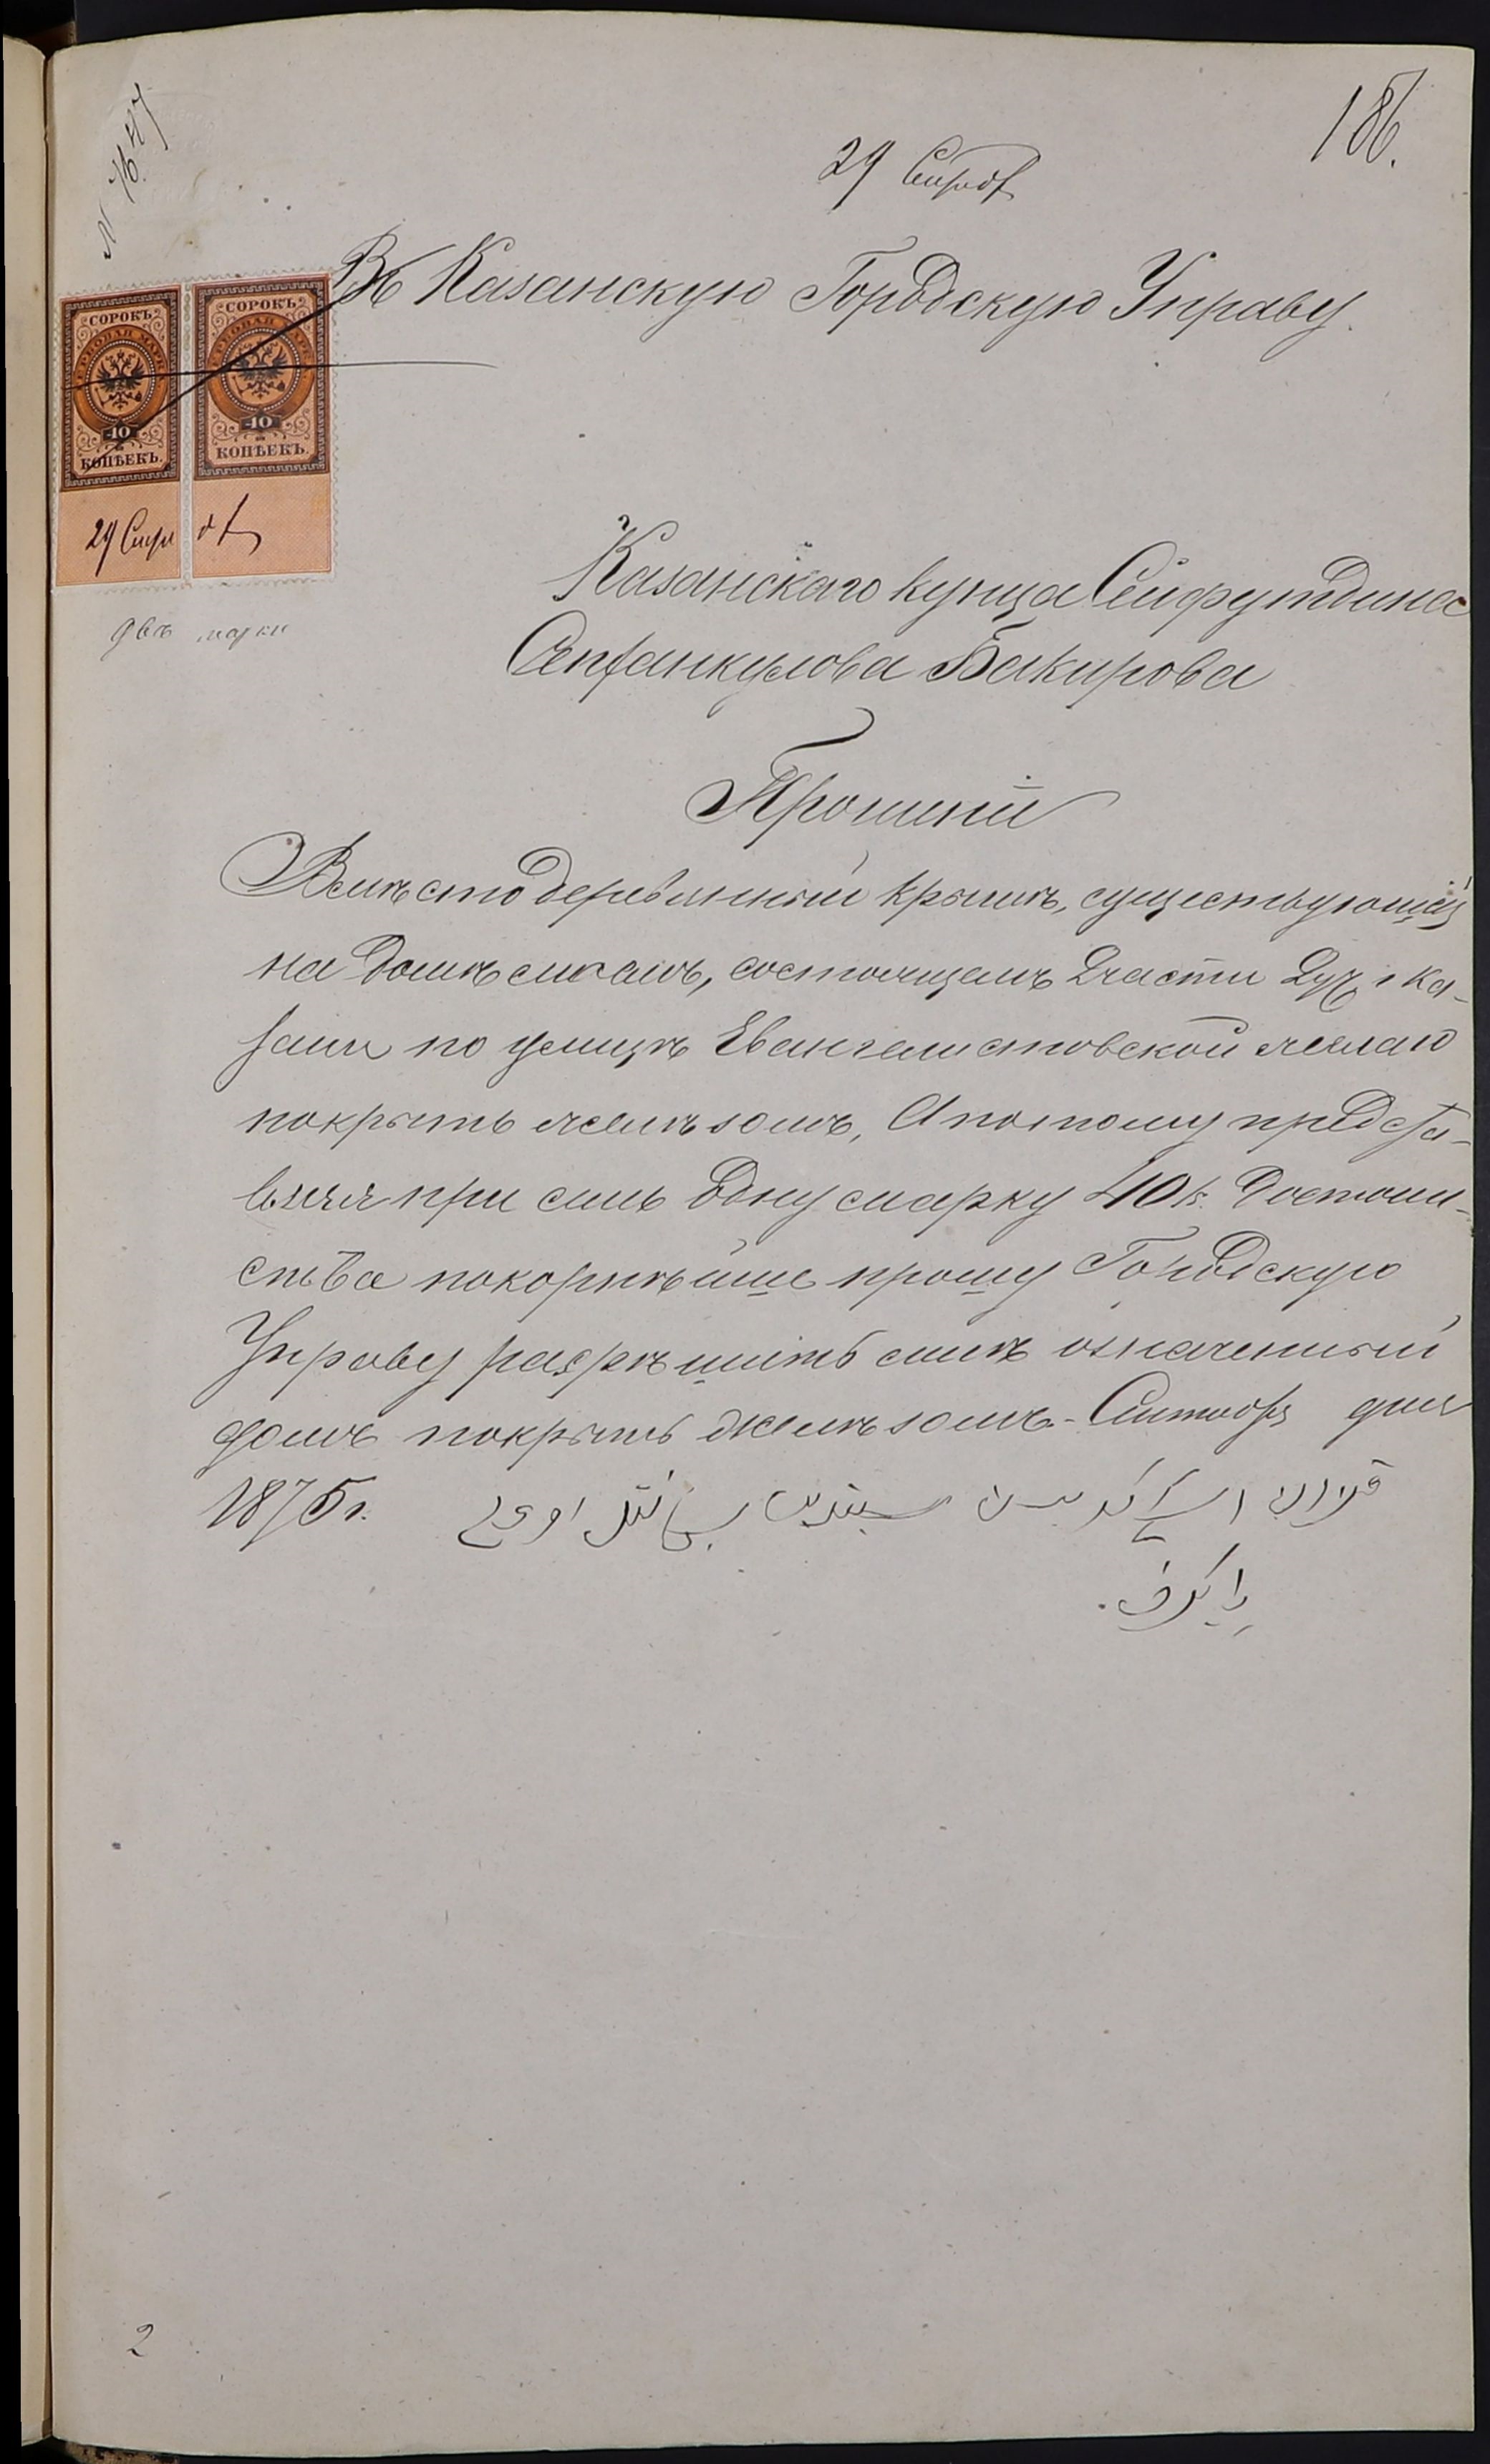 186.
29 Сентяб
№ 7647
Въ Казанскую Городскую Управу.
СОРОКЪ СОРОКЪ
40 40
КОПѢЕКЪ. КОПѢЕКЪ.
двѣ марки
Казанскаго купца Сейфутдина
Бакирова
Прошеніе
Вмѣсто деревянной крыши, существующей
на домѣ моемъ, состоящемъ 2 части 2 уч. г. Ка-
зани по улицѣ Евангелистовской желаю
покрыть желѣзомъ, А потому предста-
вляя при семъ одну марку 40 к. достоин-
ства покорнѣйше прошу Городскую
Управу разрѣшить мнѣ означенный
домъ покрыть желѣзомъ. Сентября дня
1875 г.
2